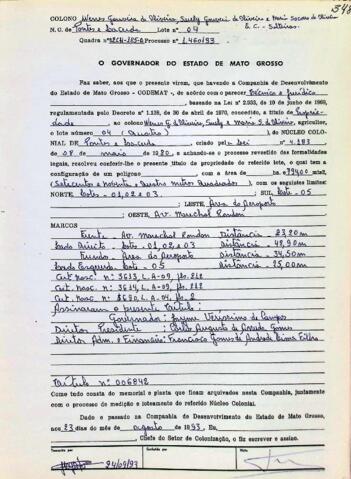 348
COLONO Neves Gouveia de Oliveira, Suely Gouveia de Oliveira e Maria Socorro de Oliveira
N. C. de Pontes e Lacerda Lote n.º 04 S. C. - Solteiras
Quadra nº Processo nº 1.460/93
O GOVERNADOR DO ESTADO DE MATO GROSSO
Faz saber, aos que o presente virem, que havendo a Companhia de Desenvolvimento
do Estado de Mato Grosso - CODEMAT -, de acordo com o parecer Técnico e Jurídico
, baseado na Lei nº 2.933, de 10 de junho de 1969,
regulamentada pelo Decreto nº 1.138, de 30 de abril de 1970, concedido a título de Proprie-
dade ao colono Neves G. de Oliveira, Suely e Maria S. de Oliveira, agricultor,
o lote número 04 (Quatro) do NÚCLEO COLO-
NIAL DE Pontes e Lacerda, criado pelo Lei nº 4.183
de 08 de maio de 1980, e achando-se o processo revestido das formalidades
legais, resolveu conferir-lhe o presente título de propriedade do referido lote, o qual tem a
configuração de um polígono com a área de ha 794,00 mts²
(Setecentos e noventa e quatro metros quadrados), com os seguintes limites:
NORTE, Lote - 01, 02 e 03 ; SUL, Lote - 05
; LESTE, Área do Aeroporto
; OESTE, Av. Marechal Rondon
MARCOS
Frente - Av. Marechal Rondon Distância - 23,20m
Lado Direito - Lote - 01, 02 e 03 Distância - 48,90m
Fundo - Área do Aeroporto Distância - 34,50m
Lado Esquerdo - Lote - 05 Distância - 25,00m
Cert. Nasc. nº: 3633, L.A-09, fls. 212
Cert. Nasc. nº: 3634, L.A-09, fls. 212
Cert. Nasc. nº: 8690, L.A-04, fls. 2
Assinaram o presente Título:
Governador: Jayme Veríssimo de Campos
Diretor Presidente: Carlos Augusto de Arruda Gomes
Diretor Adm. e Financeiro: Francisco Gomes de Andrade Lima Filho
Título nº 006842
Como tudo consta do memorial e planta que ficam arquivados nesta Companhia, juntamente
com o processo de medição e loteamento do referido Núcleo Colonial.
Dado e passado na Companhia de Desenvolvimento do Estado de Mato Grosso,
aos 23 dias do mês de agosto de 1993. Eu,
, Chefe do Setor de Colonização, o fiz escrever e assino.
Transcrito por Conferido por Nota
24/09/93